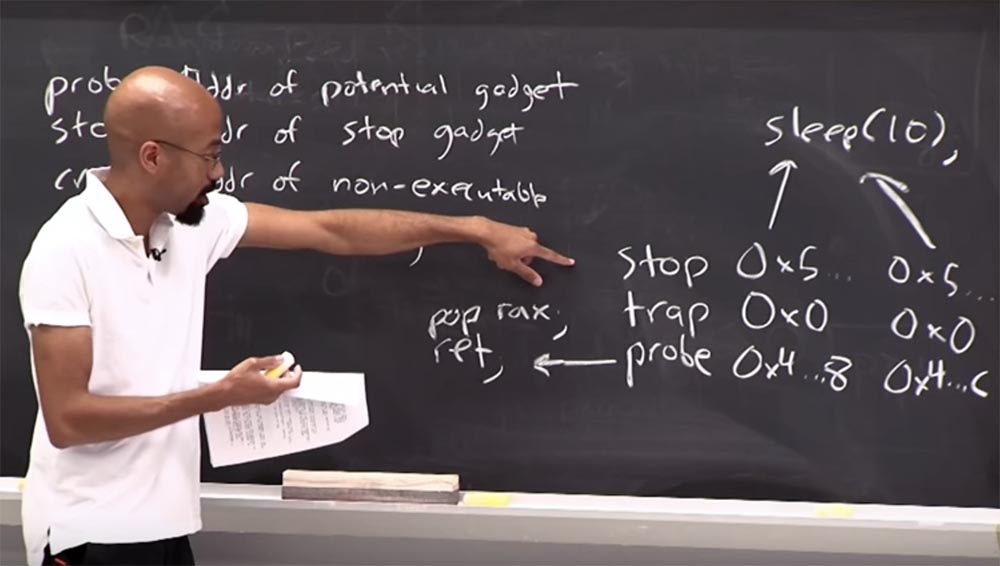 prob ddr of potential gadget
sto ddr of stop gadget
cr ddr of non-executable
sleep(10);
stop 0x5... 0x5...
trap 0x0 0x0
probe 0x4...8 0x4...C
pop rax;
ret;